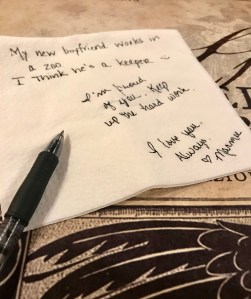 My new boyfriend works in
a zoo
I think he's a keeper
I'm proud
of you. Keep
up the hard work.
I love you.
Always
♡ Mamaw